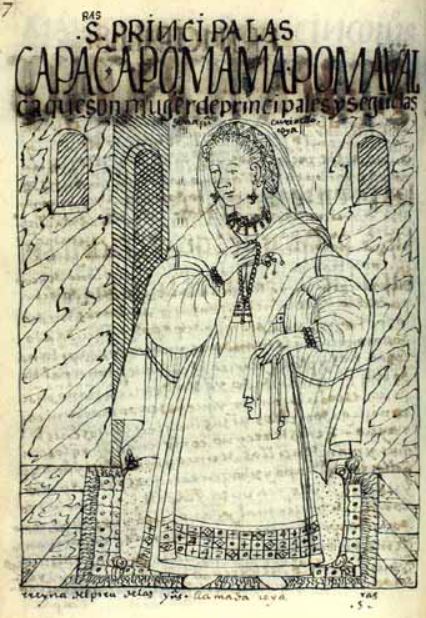 7
RAS
.S. PRINCIPALAS
CAPACAPOMAMA·POMAVAL
ca que son muger de principales y
curi ocllo
coya
reyna del piru de las yñs. llamada coya
ras
.s.